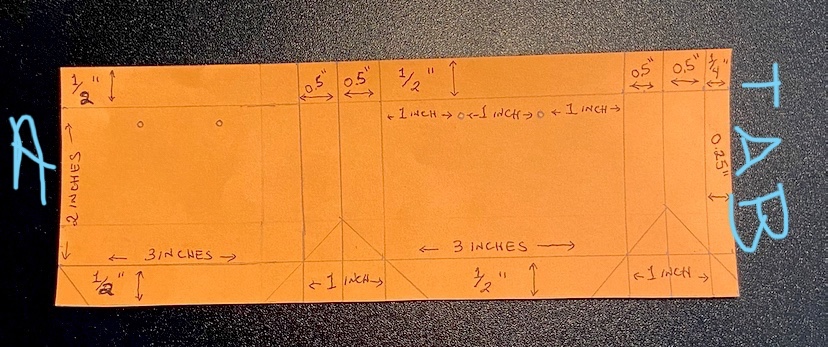 1/2"
0.5"
0.5"
1/2"
0.5"
0.5"
1/4"
TAB
1 INCH
1 INCH
1 INCH
2 INCHES
0.25"
3 INCHES
3 INCHES
1/2"
1 INCH
1/2"
1 INCH